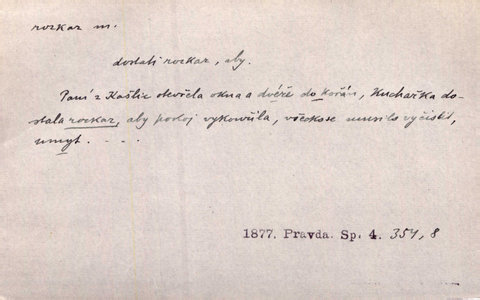 rozkaz m.
dostati rozkaz, aby.
Paní z Kaštic otevřela okna a dvéře do kořán, Kuchařka do-
stala rozkaz, aby pokoj vykouřila, všecko se musilo vyčistit,
umyt. . - -
1877. Pravda. Sp. 4. 354, 8